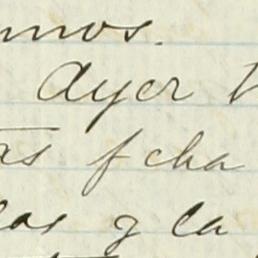 mos.
Ayer
as fcha
las y la